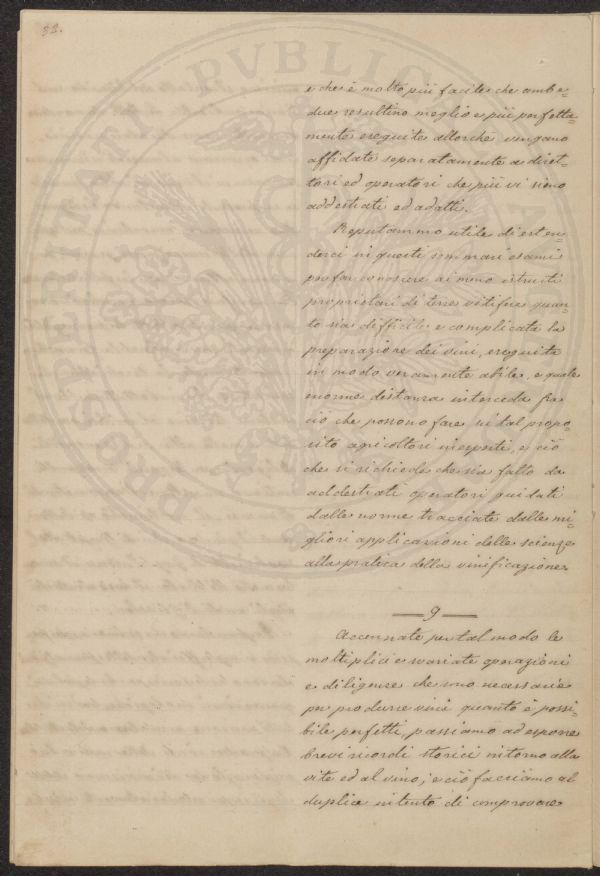 32.
e che è molto più facile che ambe=
due resultino meglio e più perfetta=
mente eseguite allorchè vengano
affidate separatamente a diret=
tori ed operatori che più vi sieno
addestrati ed adatti.
Reputammo utile di esten=
derci in questi sommari esami
per far conoscere ai meno istruiti
proprietari di terre vitifere quan=
to sia difficile e complicata la
preparazione dei vini, eseguita
in modo veramente abile, e quale
enorme distanza interceda fra
ciò che possono fare in tal propo=
sito agricoltori inesperti, e ciò
che si richiede che sia fatto da
addestrati operatori guidati
dalle norme tracciate dalle mi=
gliori applicazioni delle scienze
alla pratica della vinificazione.
9
Accennate per tal modo le
moltiplici e svariate operazioni
e diligenze che sono necessarie
per produrre vini quanto è possi=
bile perfetti, passiamo ad esporre
brevi ricordi storici intorno alla
vite ed al vino; e ciò facciamo al
duplice intento di comprovare
PVBLICAE
PROSPERITATI